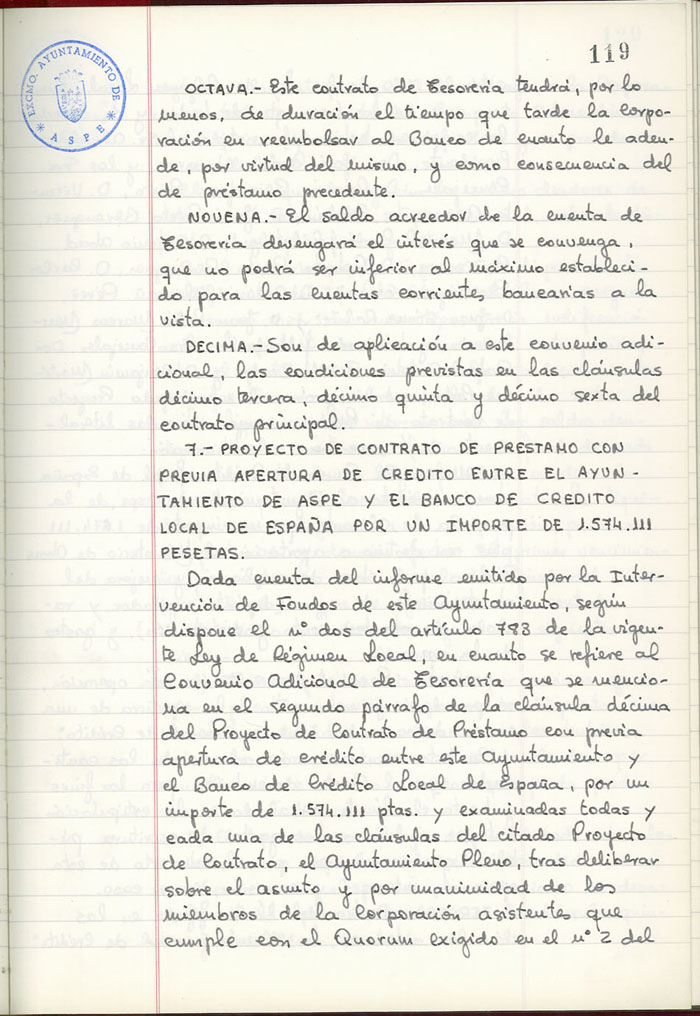 119
EXCMO. AYUNTAMIENTO DE
* ASPE *
OCTAVA.- Este contrato de Tesorería tendrá, por lo
menos, de duración el tiempo que tarde la Corpo-
ración en reembolsar al Banco de cuanto le adeu-
de, por virtud del mismo, y como consecuencia del
de préstamo precedente.
NOVENA.- El saldo acreedor de la cuenta de
Tesorería devengará el interés que se convenga,
que no podrá ser inferior al máximo estableci-
do para las cuentas corrientes bancarias a la
vista.
DECIMA.- Son de aplicación a este convenio adi-
cional, las condiciones previstas en las cláusulas
décimo tercera, décimo quinta y décimo sexta del
contrato principal.
7.- PROYECTO DE CONTRATO DE PRESTAMO CON
PREVIA APERTURA DE CREDITO ENTRE EL AYUN-
TAMIENTO DE ASPE Y EL BANCO DE CREDITO
LOCAL DE ESPAÑA POR UN IMPORTE DE 1.574.111
PESETAS.
Dada cuenta del informe emitido por la Inter-
vención de Fondos de este Ayuntamiento, según
dispone el nº dos del artículo 783 de la vigen-
te Ley de Régimen Local, en cuanto se refiere al
Convenio Adicional de Tesorería que se mencio-
na en el segundo párrafo de la cláusula décima
del Proyecto de Contrato de Préstamo con previa
apertura de crédito entre este Ayuntamiento y
el Banco de Crédito Local de España, por un
importe de 1.574.111 ptas. y examinadas todas y
cada una de las cláusulas del citado Proyecto
de Contrato, el Ayuntamiento Pleno, tras deliberar
sobre el asunto y por unanimidad de los
miembros de la Corporación asistentes que
cumple con el Quorum exigido en el nº 2 del